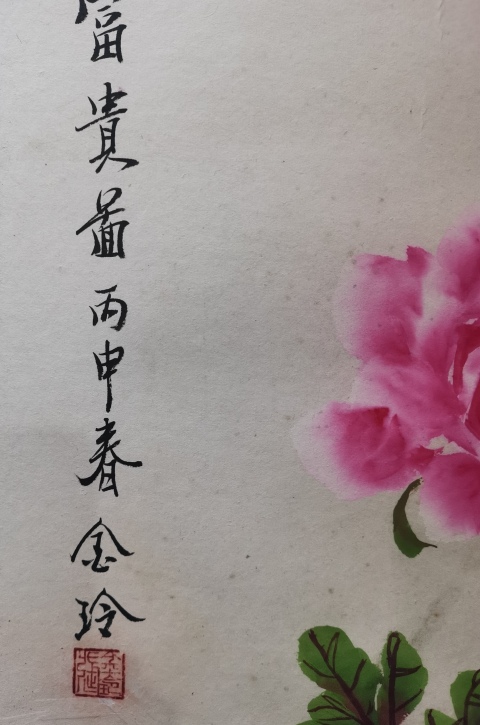 富貴圖丙申春金玲